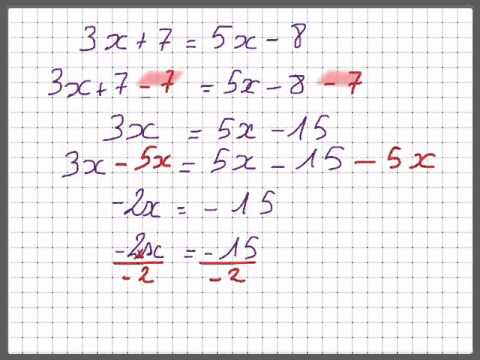 3x + 7 = 5x - 8
3x + 7 - 7 = 5x - 8 - 7
3x = 5x - 15
3x - 5x = 5x - 15 - 5x
-2x = - 15
-2x = -15
-2 -2